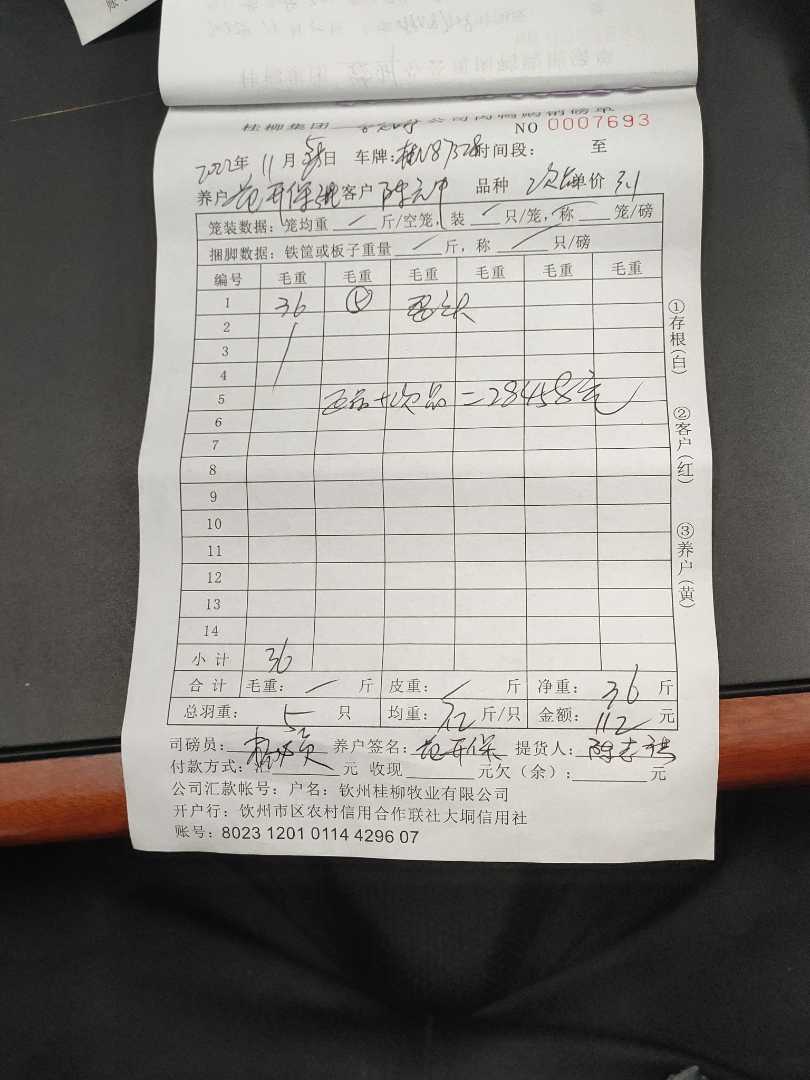 桂柳集团 公司肉鸭购销磅单
NO 0007693
2022年 11月 日 车牌:桂N87528 时间段: 至
养户 范开保 客户 品种 次 单价 3.1
笼装数据: 笼均重 斤/空笼, 装 只/笼, 称 笼/磅
捆脚数据: 铁筐或板子重量 斤, 称 只/磅
编号 毛重 毛重 毛重 毛重 毛重 毛重
1 36 ⑤
2
3
4
5 正品+次品=28458元
6
7
8
9
10
11
12
13
14
小计 36
合计 毛重: 斤 皮重: 斤 净重: 36 斤
总羽重: 5 只 均重: 7.2 斤/只 金额: 112 元
司磅员: 养户签名: 范开保 提货人:
付款方式: 汇 元 收现 元欠(余): 元
公司汇款帐号: 户名: 钦州桂柳牧业有限公司
开户行: 钦州市区农村信用合作联社大垌信用社
账号: 8023 1201 0114 4296 07
①存根(白)
②客户(红)
③养户(黄)